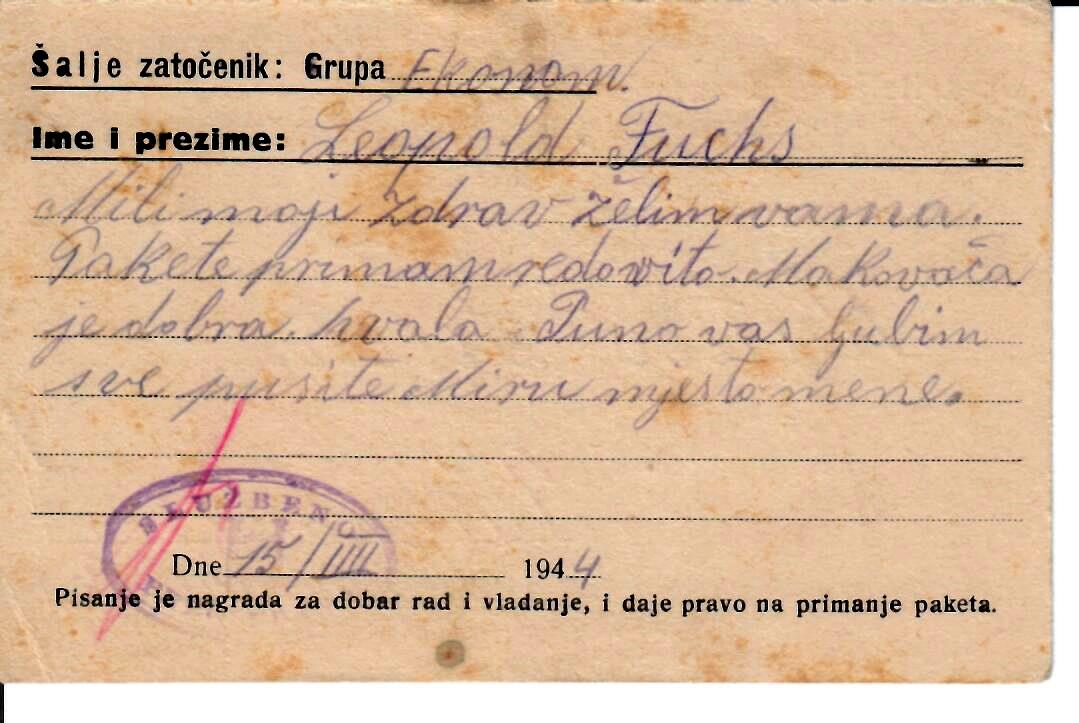 Šalje zatočenik: Grupa Ekonom.
Ime i prezime: Leopold Fuchs
Mili moji zdrav želim vama.
Pakete primam redovito. Makovača
je dobra. hvala. Puno vas ljubim
sve pusite Miru mjesto mene.
SLUŽBENO
Dne 15/IIII 1944
Pisanje je nagrada za dobar rad i vladanje, i daje pravo na primanje paketa.